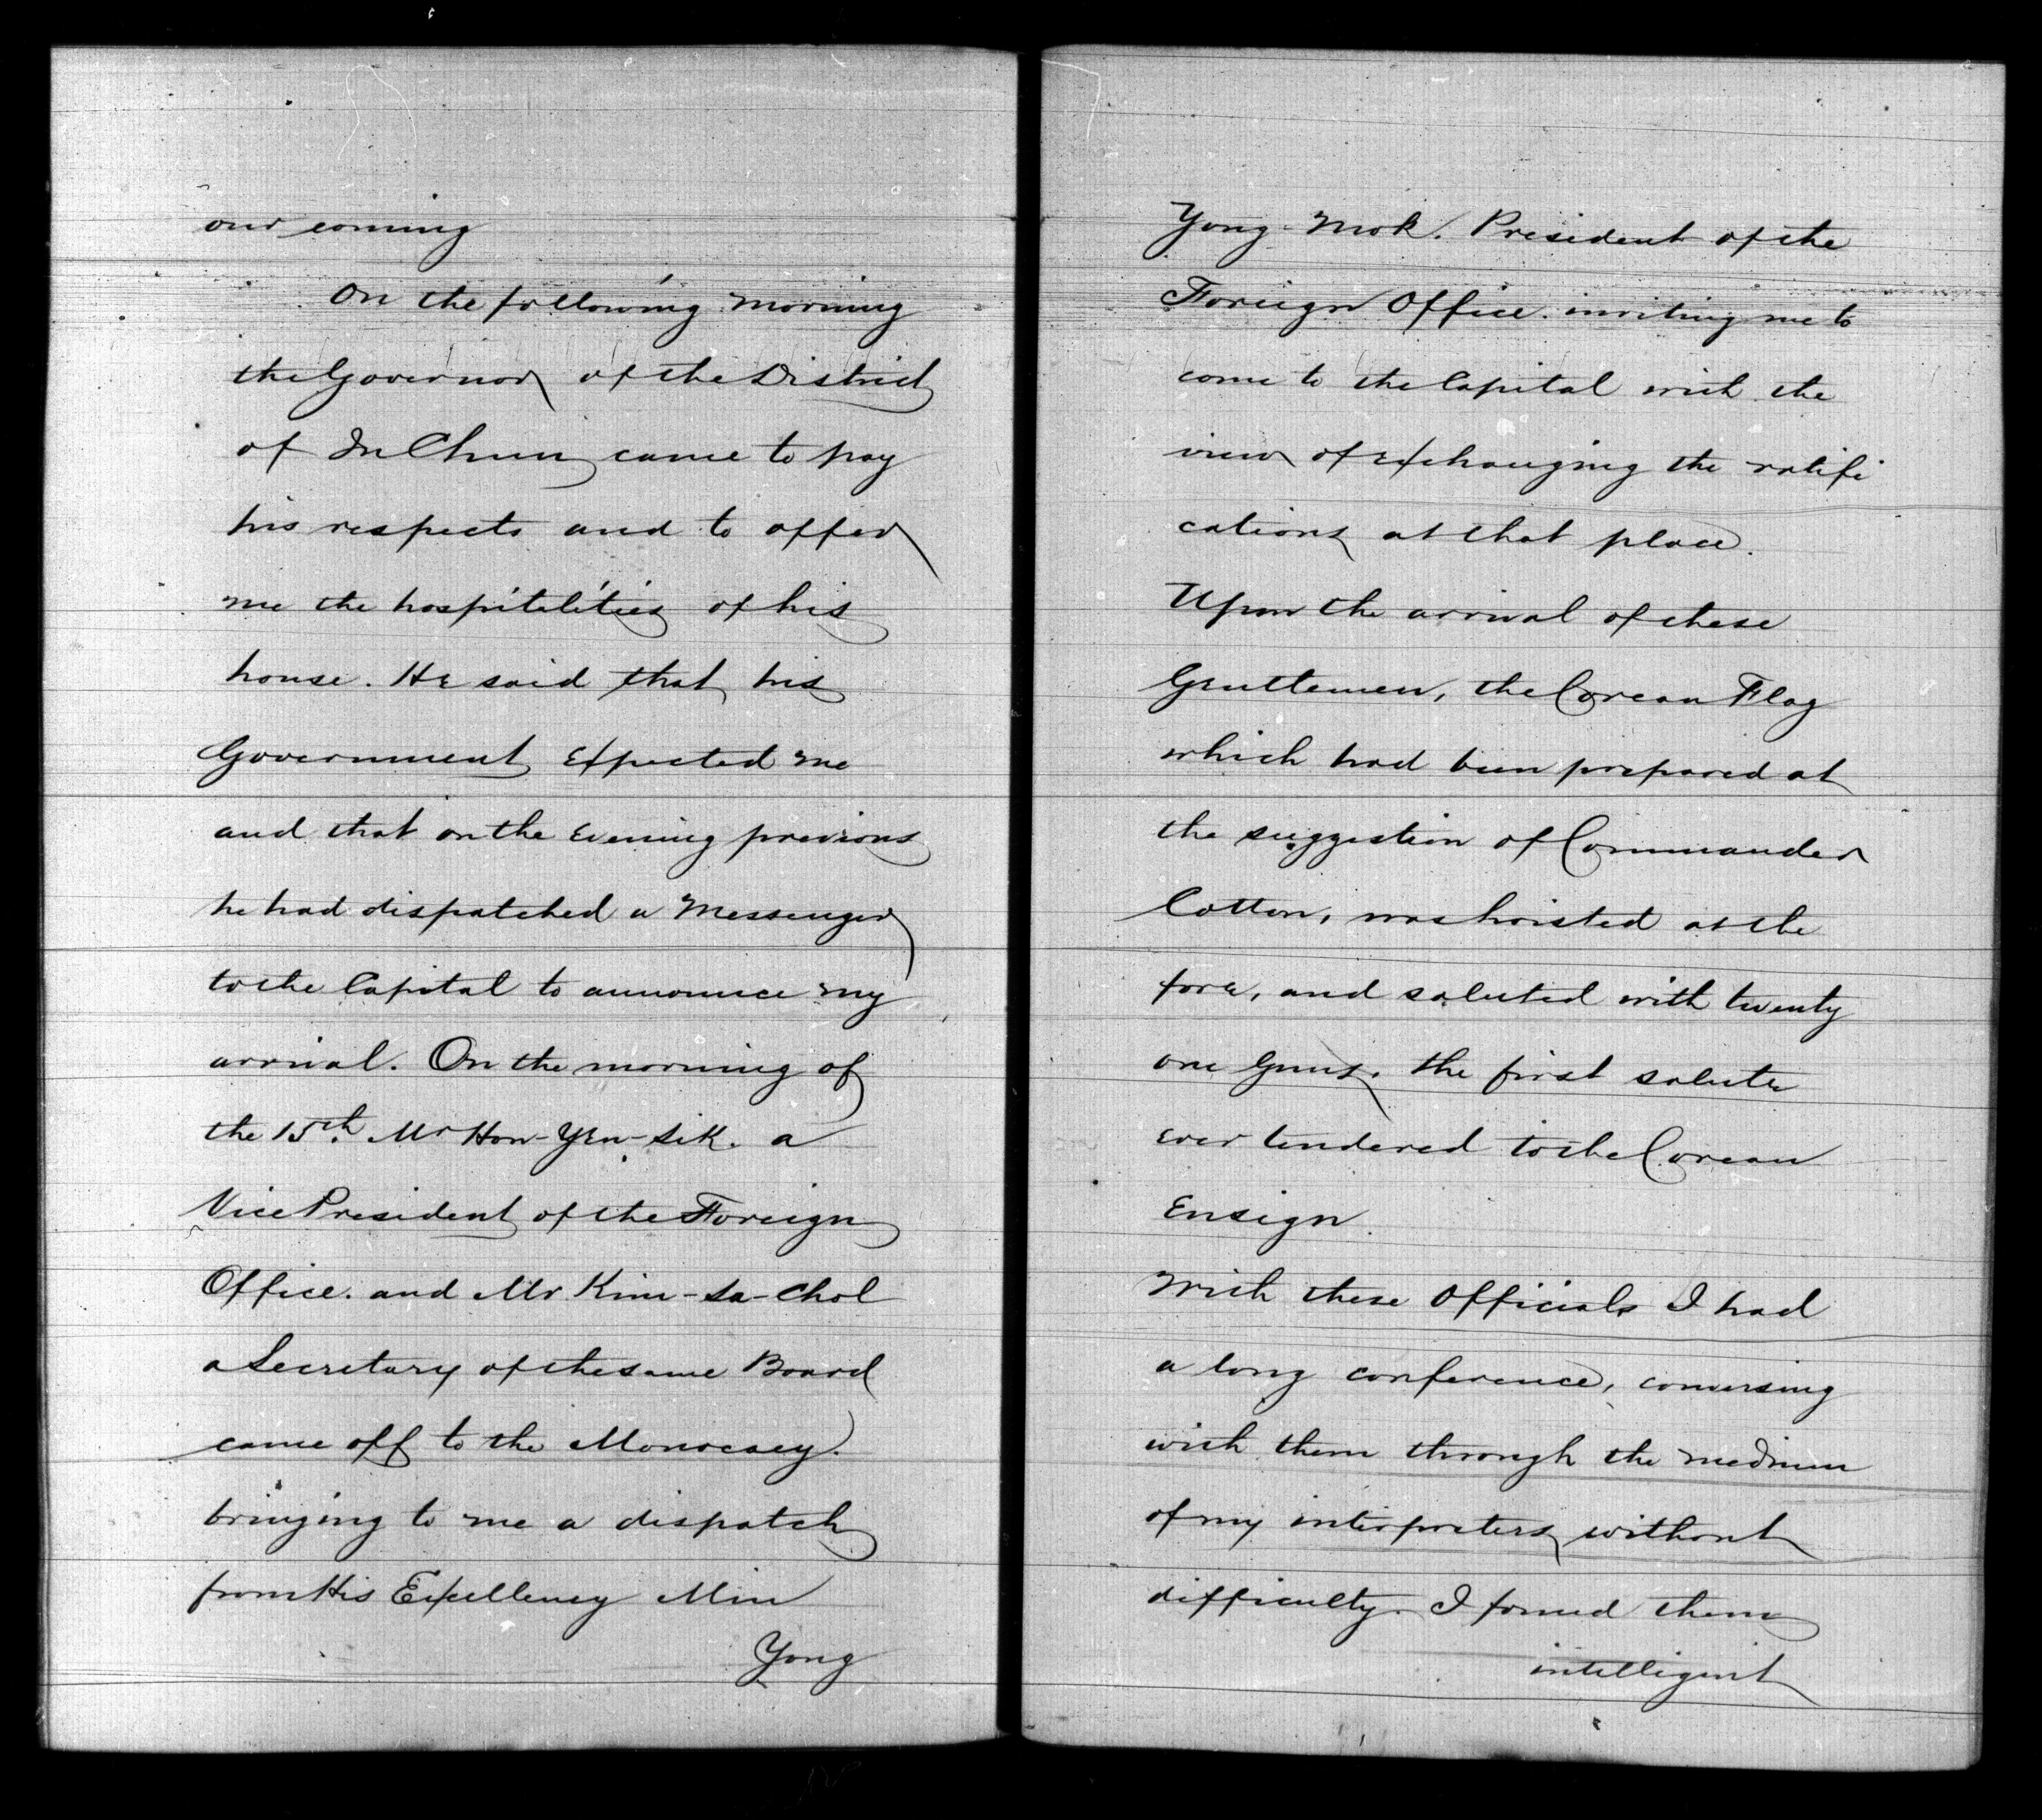 our coming
On the following morning
the Governor of the District
of In Chun came to pay
his respects and to offer
me the hospitalities of his
house. He said that his
Government Expected me
and that on the Evening previous
he had dispatched a Messenger
to the Capital to announce my
arrival. On the morning of
the 15th. Mr Hon-Yen-Sik. a
Vice President of the Foreign
Office. and Mr Kim-Sa-Chol
a Secretary of the same Board
came off to the Monocacy.
bringing to me a dispatch
from His Excellency Min
Yong
Yong-Mok. President of the
Foreign Office. inviting me to
come to the Capital with the
view of exchanging the ratifi
cations at that place.
Upon the arrival of these
Gentlemen, the Corean Flag
which had been prepared at
the suggestion of Commander
Cotton, was hoisted at the
fore, and saluted with twenty
one Guns. the first salute
ever tendered to the Corean
Ensign.
With these Officials I had
a long conference, conversing
with them through the medium
of my interpreters without
difficulty. I found them
intelligent